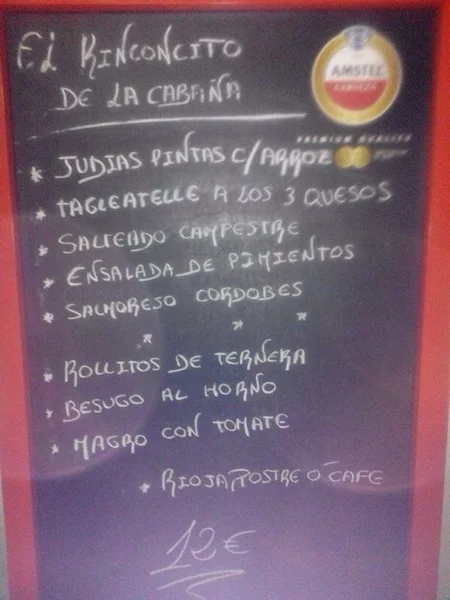 EL RINCONCITO
DE LA CABAÑA
AMSTEL
CERVEZA
PREMIUM QUALITY
* JUDIAS PINTAS C/ARROZ
* TAGLEATELLE A LOS 3 QUESOS
* SALTEADO CAMPESTRE
* ENSALADA DE PIMIENTOS
* SALMOREJO CORDOBES
* * *
* ROLLITOS DE TERNERA
* BESUGO AL HORNO
* MAGRO CON TOMATE
* RIOJA, POSTRE O CAFE
12€